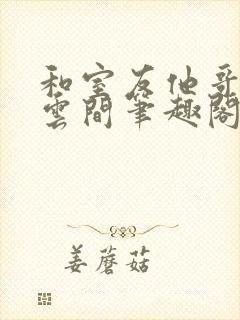 和室友他哥
雲間筆趣閣
姜蘑菇